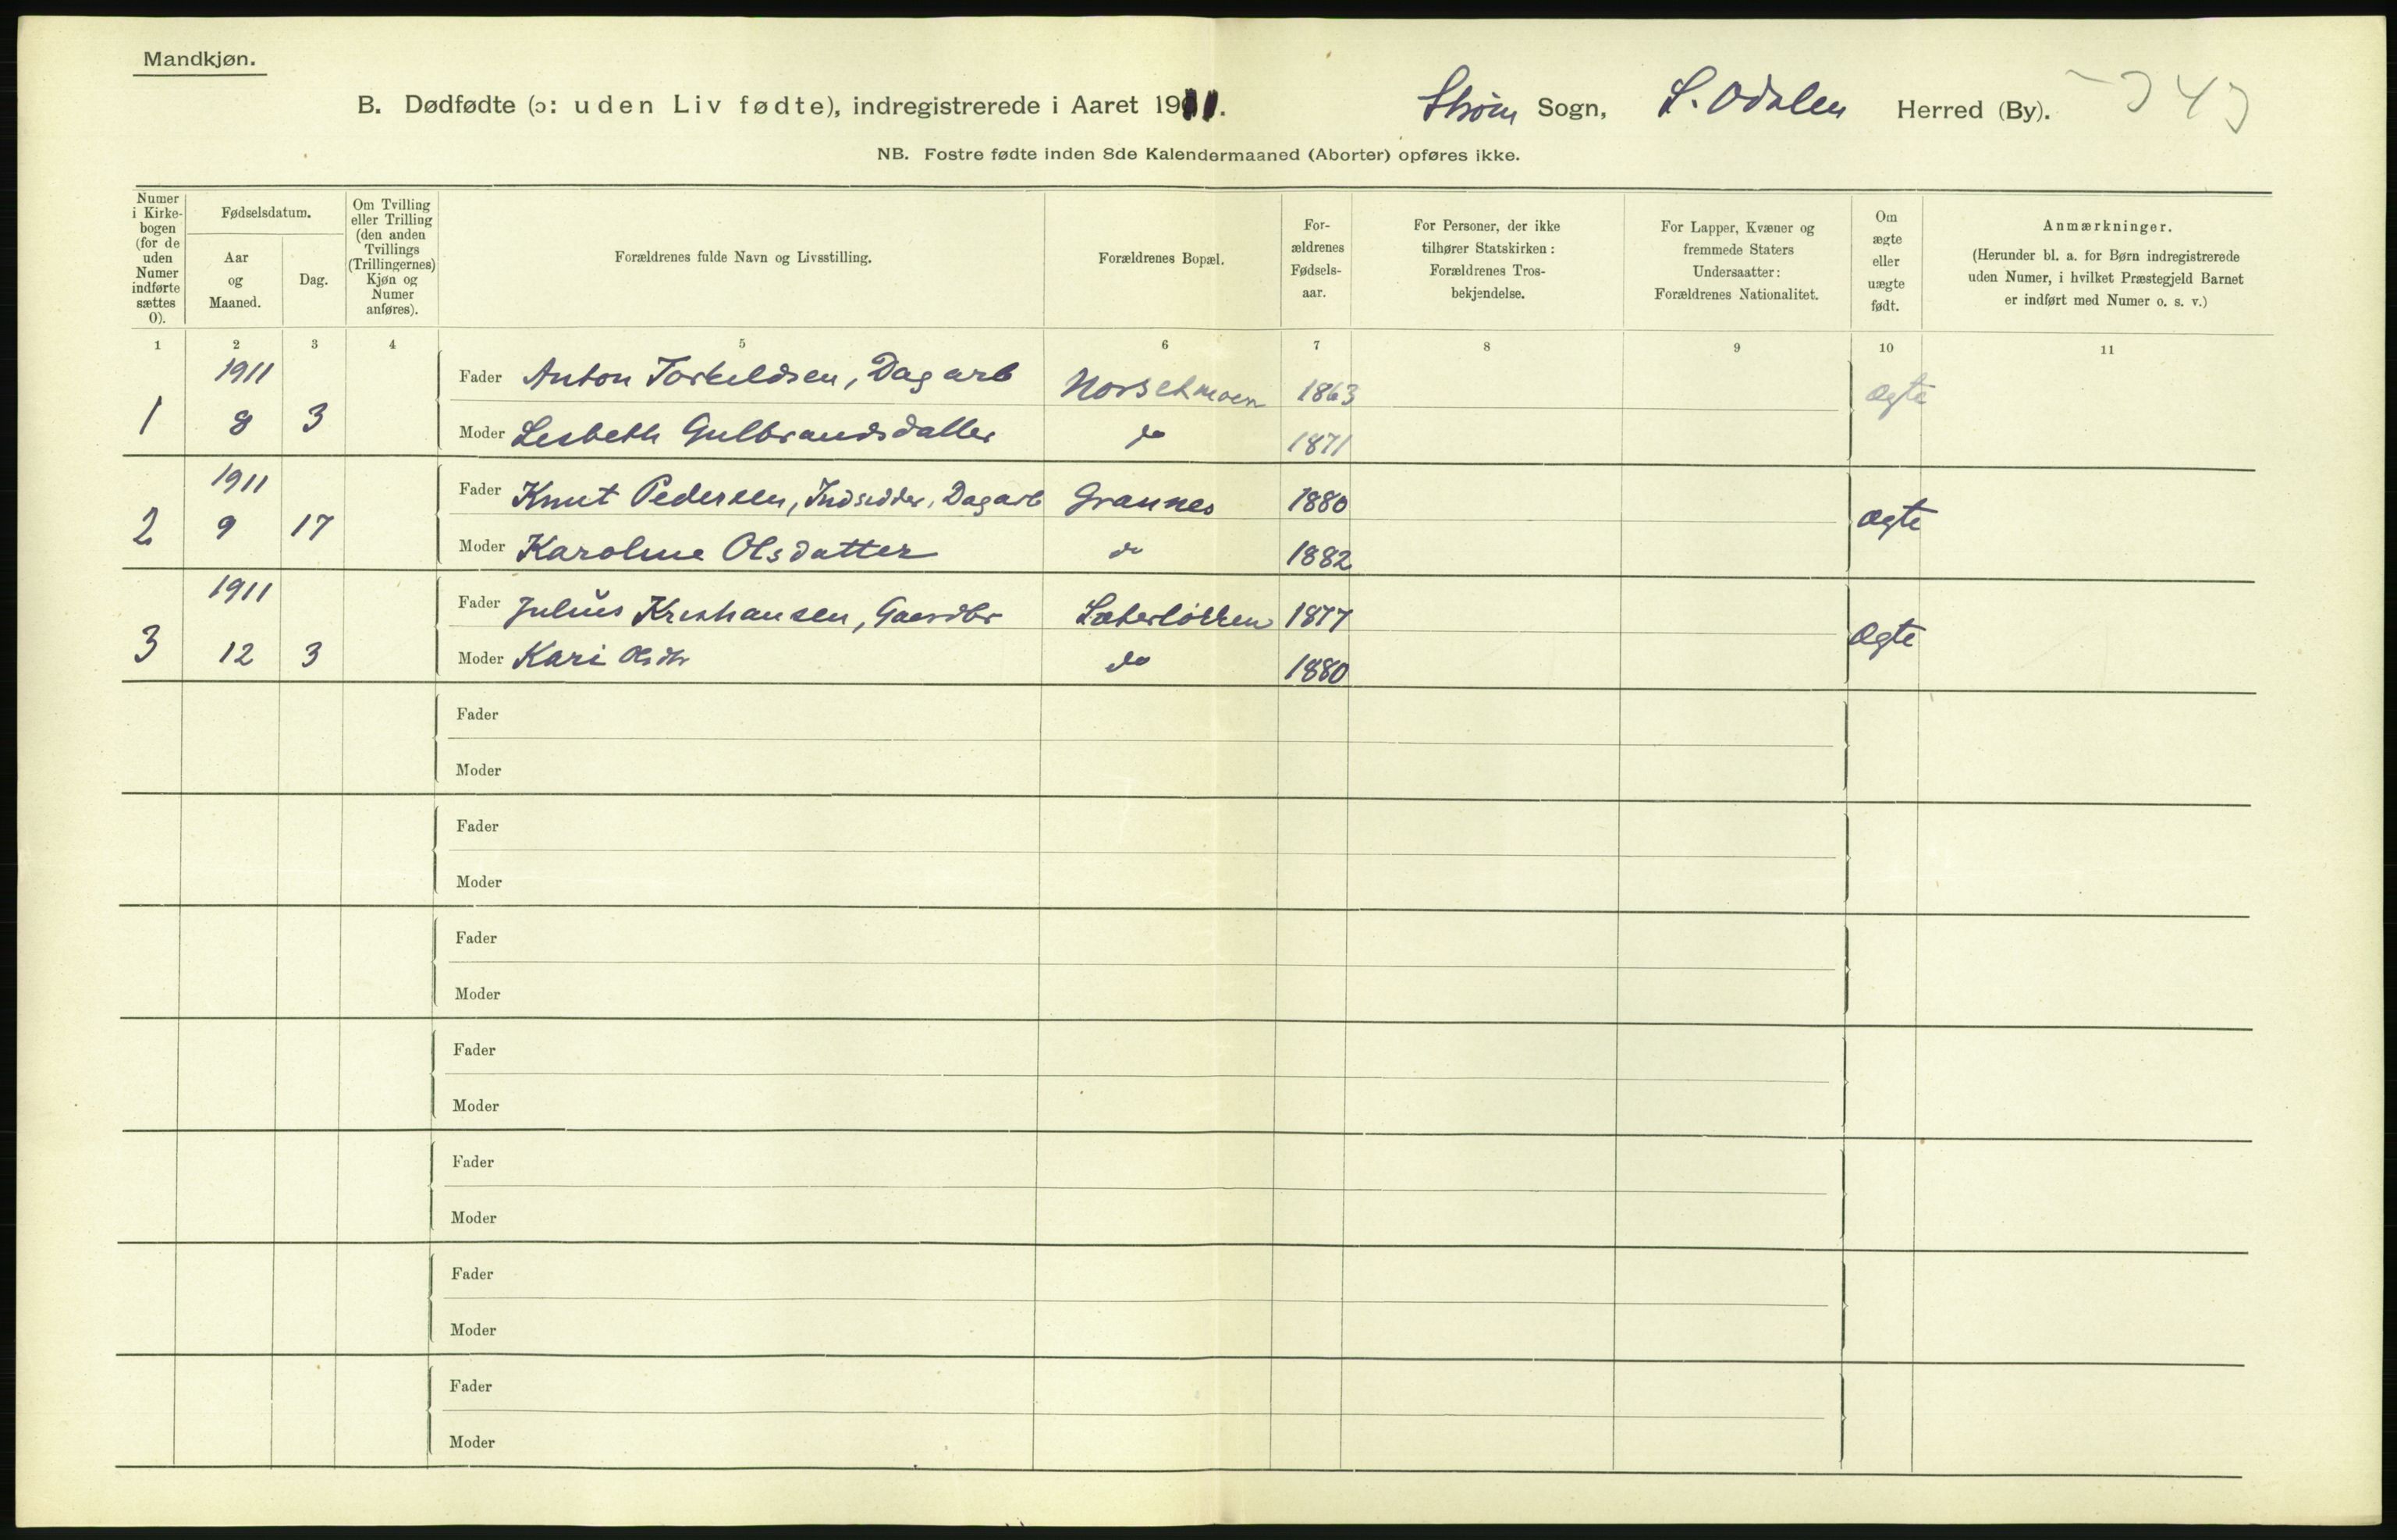 Mandkjøn.
B. Dødfødte (ɔ: uden Liv fødte), indregistrerede i Aaret 1911. Strøm Sogn, S. Odalen Herred (By). 343
NB. Fostre fødte inden 8de Kalendermaaned (Aborter) opføres ikke.
Numer i Kirkebogen (for de uden Numer indførte sættes 0).
Fødselsdatum.
Aar og Maaned.
Dag.
Om Tvilling eller Trilling (den anden Tvillings (Trillingernes) Kjøn og Numer anføres).
Forældrenes fulde Navn og Livsstilling.
Forældrenes Bopæl.
Forældrenes Fødselsaar.
For Personer, der ikke tilhører Statskirken: Forældrenes Trosbekjendelse.
For Lapper, Kvæner og fremmede Staters Undersaatter: Forældrenes Nationalitet.
Om ægte eller uægte født.
Anmærkninger.
(Herunder bl. a. for Børn indregistrerede uden Numer, i hvilket Præstegjeld Barnet er indført med Numer o. s. v.)
1 2 3 4 5 6 7 8 9 10 11
1911 Fader Anton Torkildsen, Dagarb Norsetmoen 1863 Ægte
1 8 3 Moder Lisbeth Gulbrandsdatter do 1871
1911 Fader Knut Pedersen, Indsidder, Dagarb Grannes 1880 Ægte
2 9 17 Moder Karoline Olsdatter do 1882
1911 Fader Julius Kristiansen, Gaardbr Sæterløkken 1877 Ægte
3 12 3 Moder Kari Olsdtr do 1880
Fader
Moder
Fader
Moder
Fader
Moder
Fader
Moder
Fader
Moder
Fader
Moder
Fader
Moder